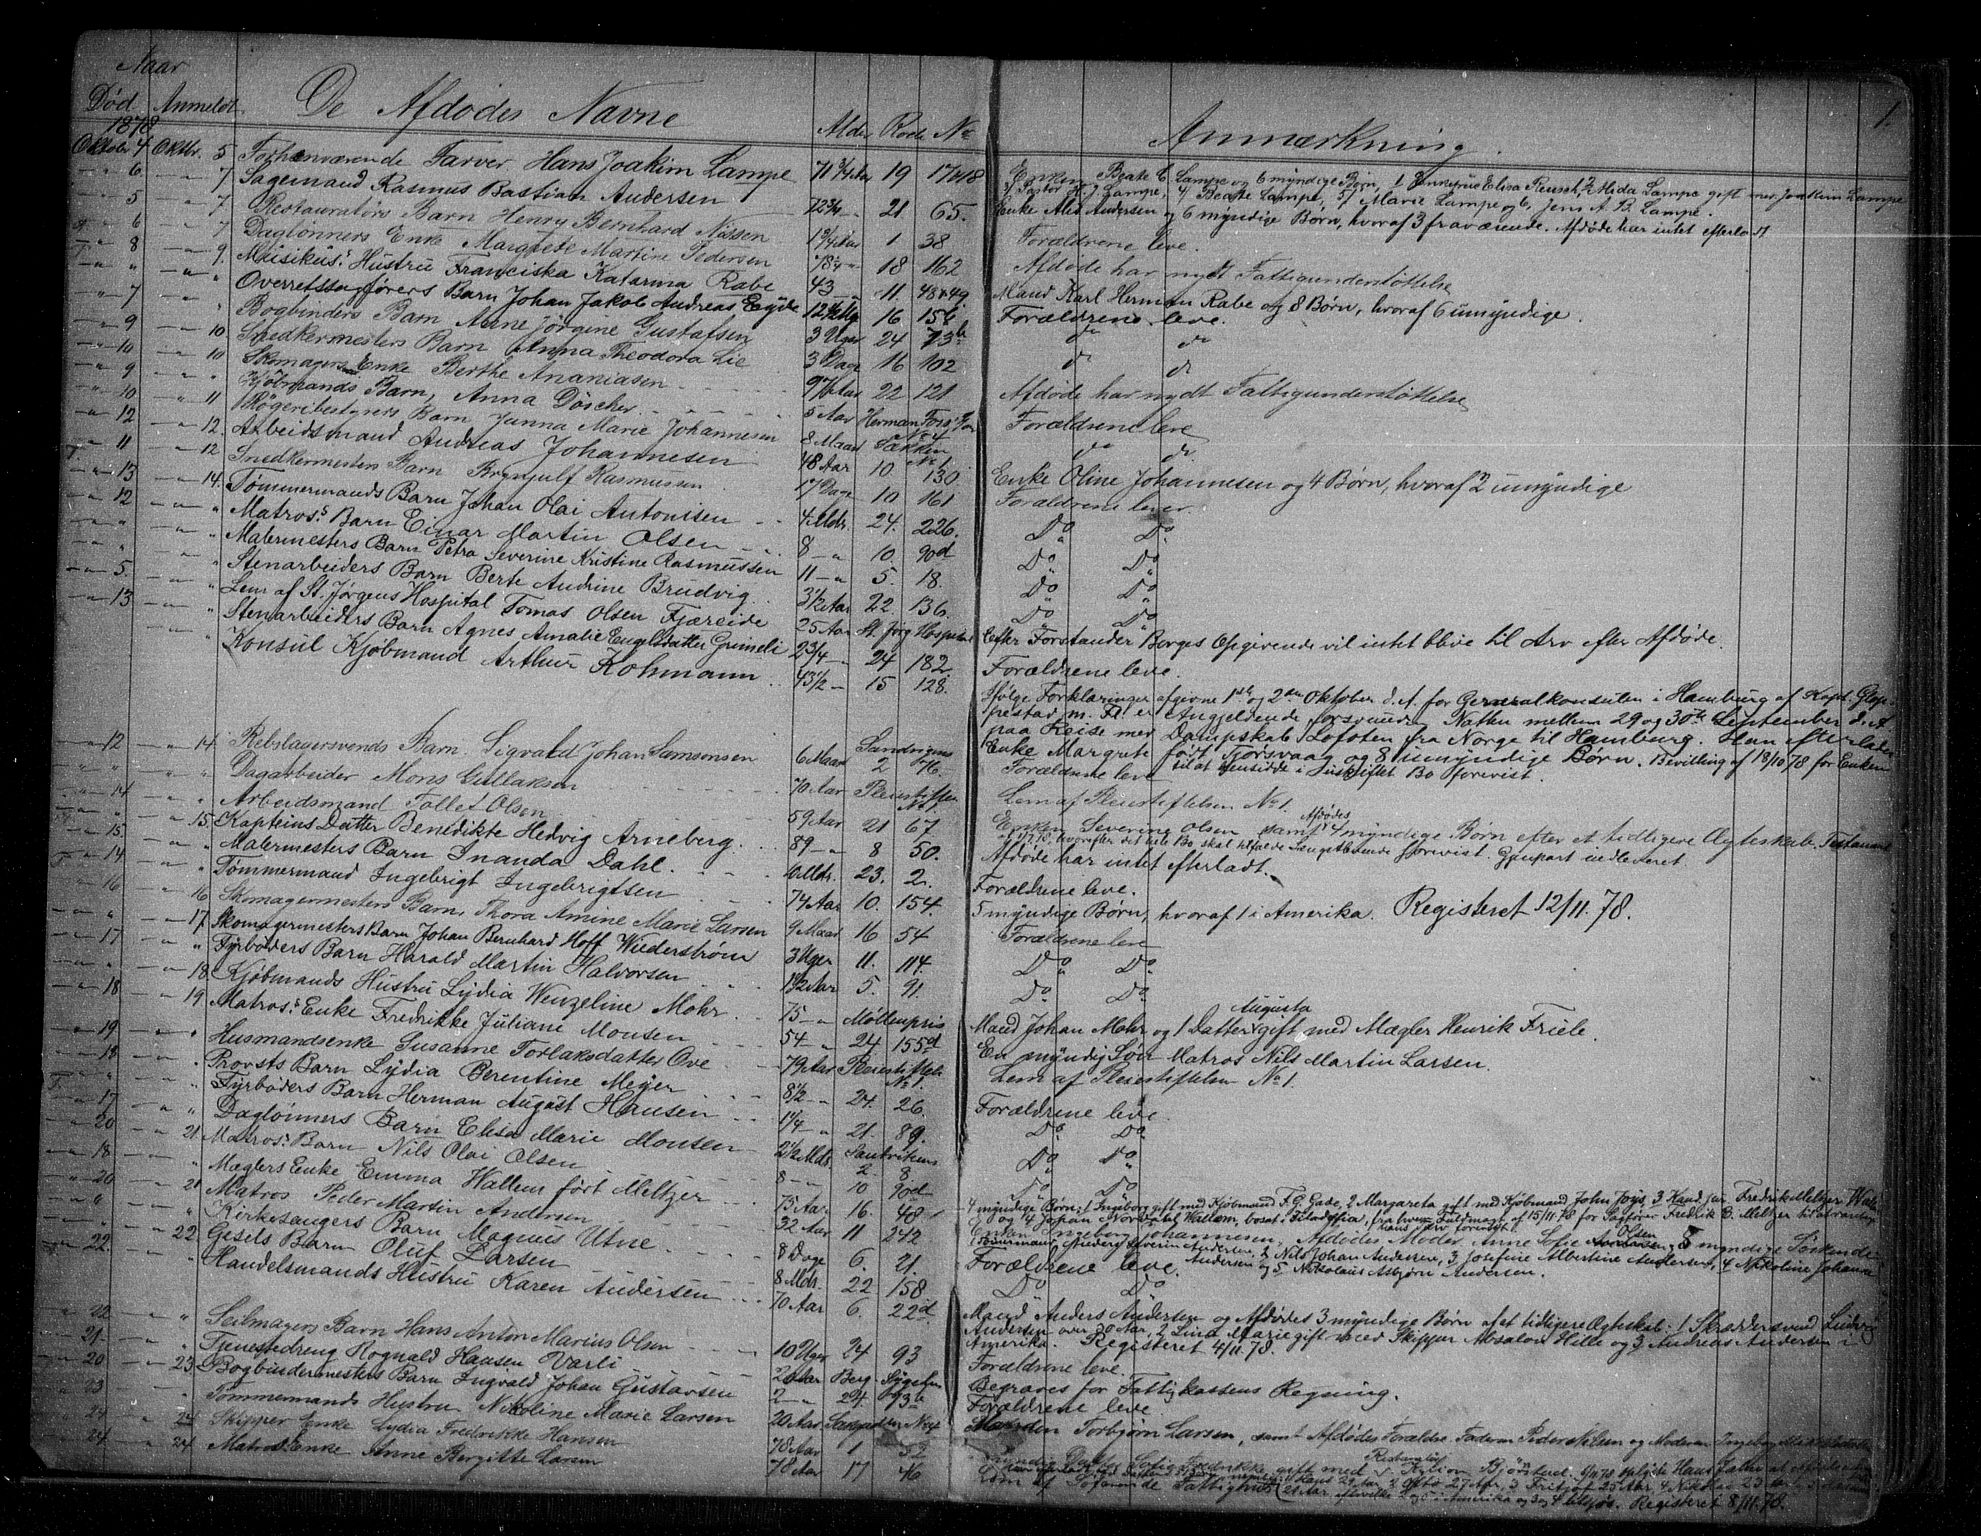 1.
Naar
Død Anmeldt. De Afdødes Navne Alder Rode No Anmærkning
1878
Oktober 4 Oktbr. 5 Forhenværende Farver Hans Joakim Lampe 71 3/4 Aar 19 17&18 Enken Beate C. Lampe og 6 myndige Børn, 1 Elisa Reusch, 2 Alida Lampe gift med Joakim Lampe
3 Pastor H. J. Lampe, 4 Beate Lampe, 5 Marie Lampe og 6, Jens A. B. Lampe.
6 7 Sagemand Rasmus Bastian Andersen 21 65. Enke Andersen og 6 myndige Børn, hvoraf 3 fraværende. Afdøde har intet efterladt
5 7 Restauratørs Barn Henry Bernhard Nissen 1 38 Forældrene leve.
6 7 Daglønners Enke Margrete Martine Pedersen 18 162 Afdøde har nydt Fattigunderstøttelse
8 9. Musikus's Hustru Franciska Katarina Rabe 43 11. 48&49. Mand Karl Herman Rabe og 8 Børn, hvoraf 6 umyndige.
Overretssagførers Barn Johan Jakob Andreas 16 Forældrene leve.
7 Bogbinders Barn Anne Jørgine Gustafsen 3 Uger 24 73b do do
9 10 Snedkermesters Barn Anna Theodora Lie 3 Dage 16 102 do do
10 10 Skomagers Enke Berthe Ananiasen 22 121 Afdøde har nydt Fattigunderstøttelse
9 Kjøbmands Barn, Anna Döscher 5 Aar Forældrene leve
10 11 Barn Janna Marie Johannesen 8 Maan do do
12 12 Arbeidsmand Andreas Johannesen 48 Aar 10 130 Enke Oline Johannesen og 4 Børn, hvoraf 2 umyndige
11 12 Snedkermesters Barn Brynjulf Rasmussen 17 Dage 10 161 Forældrene lever
13 14. Tømmermands Barn Johan Olai Antonisen 4 Mdr. 24. 226. Do Do
12 Matros's Barn Einar Martin Olsen 8 10. 90d Do Do
Malermesters Barn Petra Severine Kristine Rasmussen 11 5. 18. Do Do
Stenarbeiders Barn Berte Andrine Brudvig 3 1/2 Aar 22. 136. Do Do
5. Lem af St. Jørgens Hospital Tomas Olsen Fjæreide 25 Aar St. Jørg. Hospital Efter Forstander Borges Opgivende vil intet blive til Arv efter Afdøde.
13 Stenarbeiders Barn Agnes Amalie Engelsdatter Grimeli 2 3/4 24 182 Forældrene leve.
Konsul Kjøbmand Arthur Kohmann 43 1/2 15 128. Ifølge Forklaringer afgivne 1ste og 2den Oktober d. A. for Generalkonsulen i Hamburg af Kapt. Glop-
pestad m. Fl. er Angjeldende forsvunden Natten mellem 29 og 30te September d. A.
paa Reise med Dampskib Lofoten fra Norge til Hamburg. Han efterlader
Enke Margrete født Fjørsvaag og 8 umyndige Børn. Bevilling af 19/10 78 for Enken
til at hensidde i uskiftet Bo forevist.
12 14. Rebslagersvends Barn Sigvald Johan Samsonsen 6 Maan 2 76. Forældrene leve
Dagarbeider Mons Gullaksen 70 Aar Pleiestiften No 1. Lem af Pleiestiftelsen No 1.
14 Arbeidsmand Tollef Olsen 59 Aar 21 67. Enken Severine Olsen samt Afdødes 4 myndige Børn efter et tidligere Ægteskab. Testament
hvorefter det hele Bo skal tilfalde Længstlevende forevist. Gjenpart indleveret
15. Kapteins Datter Benedikte Hedvig Arneberg. 89 8 50. Afdøde har intet efterladt.
15. Malermesters Barn Inanda Dahl. 6 Mdr. 23. 2. Forældrene leve.
14 Tømmermand Ingebrigt Ingebrigtsen 74 Aar 10. 154. 5 myndige Børn, hvoraf 1 i Amerika. Registeret 12/11. 78.
16 16 Skomagermesters Barn, Thora Amine Marie Larsen 9 Maan 16 54 Forældrene leve
17. Skomagermesters Barn Johan Bernhard Hoff Wiederstrøm 3 Uger 11. 114. Do Do
17 Fyrbøders Barn Harald Martin Halvorsen 1 1/2 Aar 5. 91. Do Do
18. Kjøbmands Hustru Lydia Wenzeline Mohr 75 Møllenpris Mand Johan Mohr og 1 Datter Augusta gift med Mægler Henrik Friele.
18 19. Matros's Enke Fredrikke Juliane Monsen 54 24 155d En myndig Søn Matros Nils Martin Larsen.
19 Husmandsenke Susanne Torlaksdatter Ove 79 Aar Pleiestiftels No 1. Lem af Pleiestiftelsen No 1.
18 Provsts Barn Lydia Berentine Meyer 8 1/2 24. 26. Forældrene leve.
Fyrbøders Barn Herman August Hansen 1 1/4 21. 89. Do Do
17 Daglønners Barn Elisa Marie Monsen 2 1/2 Mdr. Sandvikens 2. 8 Do Do
20 21 Matros's Barn Nils Olai Olsen 8 10 90d Do Do
18 Mæglers Enke Emma Hallem født Meltzer 75 Aar 16. 48 4 myndige Børn; 1 Ingeborg gift med Kjøbmand F. G. Gade, 2 Margareta gift med Kjøbmand John Joys, 3 Kand. jur. Fredrik Meltzer
og 4 Johan Nordahl Wallem, bosat i Filadelfia, fra hvem Fuldmagt af 15/11 78 for Sagfører Fredrik B. Meltzer til at varetage
hans Arv forevist.
20 21 Matros Peder Martin Andersen 22 Aar 11 242 Enken Ingeborg Johannesen, Afdødes Moder Anne Sofie Olsen og 5 myndige Søskende
1 Tømmermand Anders Severin Andersen, 2 Nils Johan Andersen, 3 Josefine Albertine Andersen, 4 Nikoline Johanne
Andersen og 5 Nikolaus Asbjørn Andersen.
Kirkesangers Barn Magnus Utne 8 Dage 6. 21. Forældrene leve.
22 Gesels Barn Oluf Larsen 8 Mdr. 22 158 Do Do
22. Handelsmands Hustru Karen Andersen 70 Aar 6. 22d. Mand Anders Andersen og Afdødes 3 myndige Børn af et tidligere Ægteskab. 1 Skræddersvend Ludvig
Andersen over 30 Aar, 2 Lina Marie gift med Skipper Absalon Hille og 3 Andreas Andersen i
Amerika. Registeret 4/11. 78.
22 Seilmagers Barn Hans Anton Marius Olsen 10 Uger 24 93 Forældrene leve.
21 Tjenestedreng Rognald Hansen Varli Berg. Sygehus Begraves for Fattigkassens Regning.
20 23. Bogbindermesters Barn Ingvald Johan Gustavsen 2 24. 93b Forældrene leve.
23 Tømmermands Hustru Nikoline Marie Larsen 20 Aar Manden Torbjørn Larsen, samt Afdødes Forældre. Faderen Peder Nilsen og Moderen Ingeborg
24 24 Skipper Enke Lydia Fredrikke Hansen 78 Aar 1 52 Datter Sofie Fredrikke gift med
24 24 Matros Enke Anne Birgitte Larsen 78 Aar 17 Lem af Fattighus 2 Otto 27 Aar, 3 Fritjof 25 Aar, 4 Nikolai 23
Amerika og 3 og 4 tilsjøs. Registeret 8/11. 78.